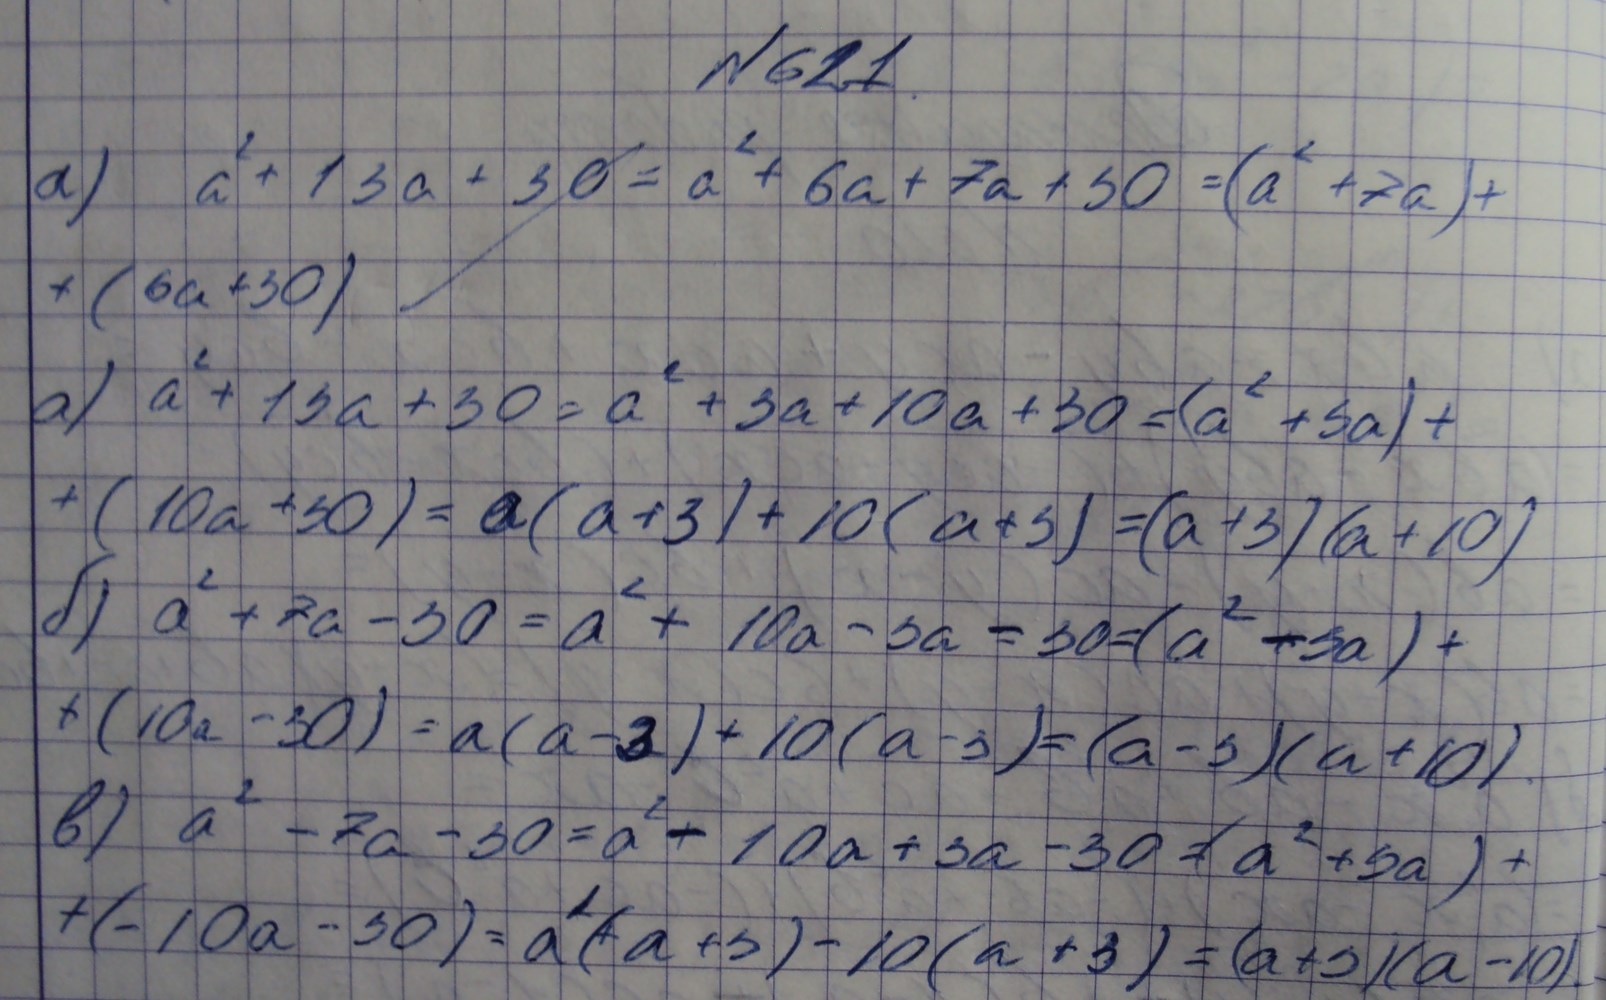 №621.
а) a² + 13a + 30 = a² + 6a + 7a + 30 = (a² + 7a) +
+ (6a + 30)
а) a² + 13a + 30 = a² + 3a + 10a + 30 = (a² + 3a) +
+ (10a + 30) = a(a + 3) + 10(a + 3) = (a + 3)(a + 10)
б) a² + 7a - 30 = a² + 10a - 3a - 30 = (a² - 3a) +
+ (10a - 30) = a(a - 3) + 10(a - 3) = (a - 3)(a + 10).
в) a² - 7a - 30 = a² - 10a + 3a - 30 = (a² + 3a) +
+ (-10a - 30) = a(a + 3) - 10(a + 3) = (a + 3)(a - 10).